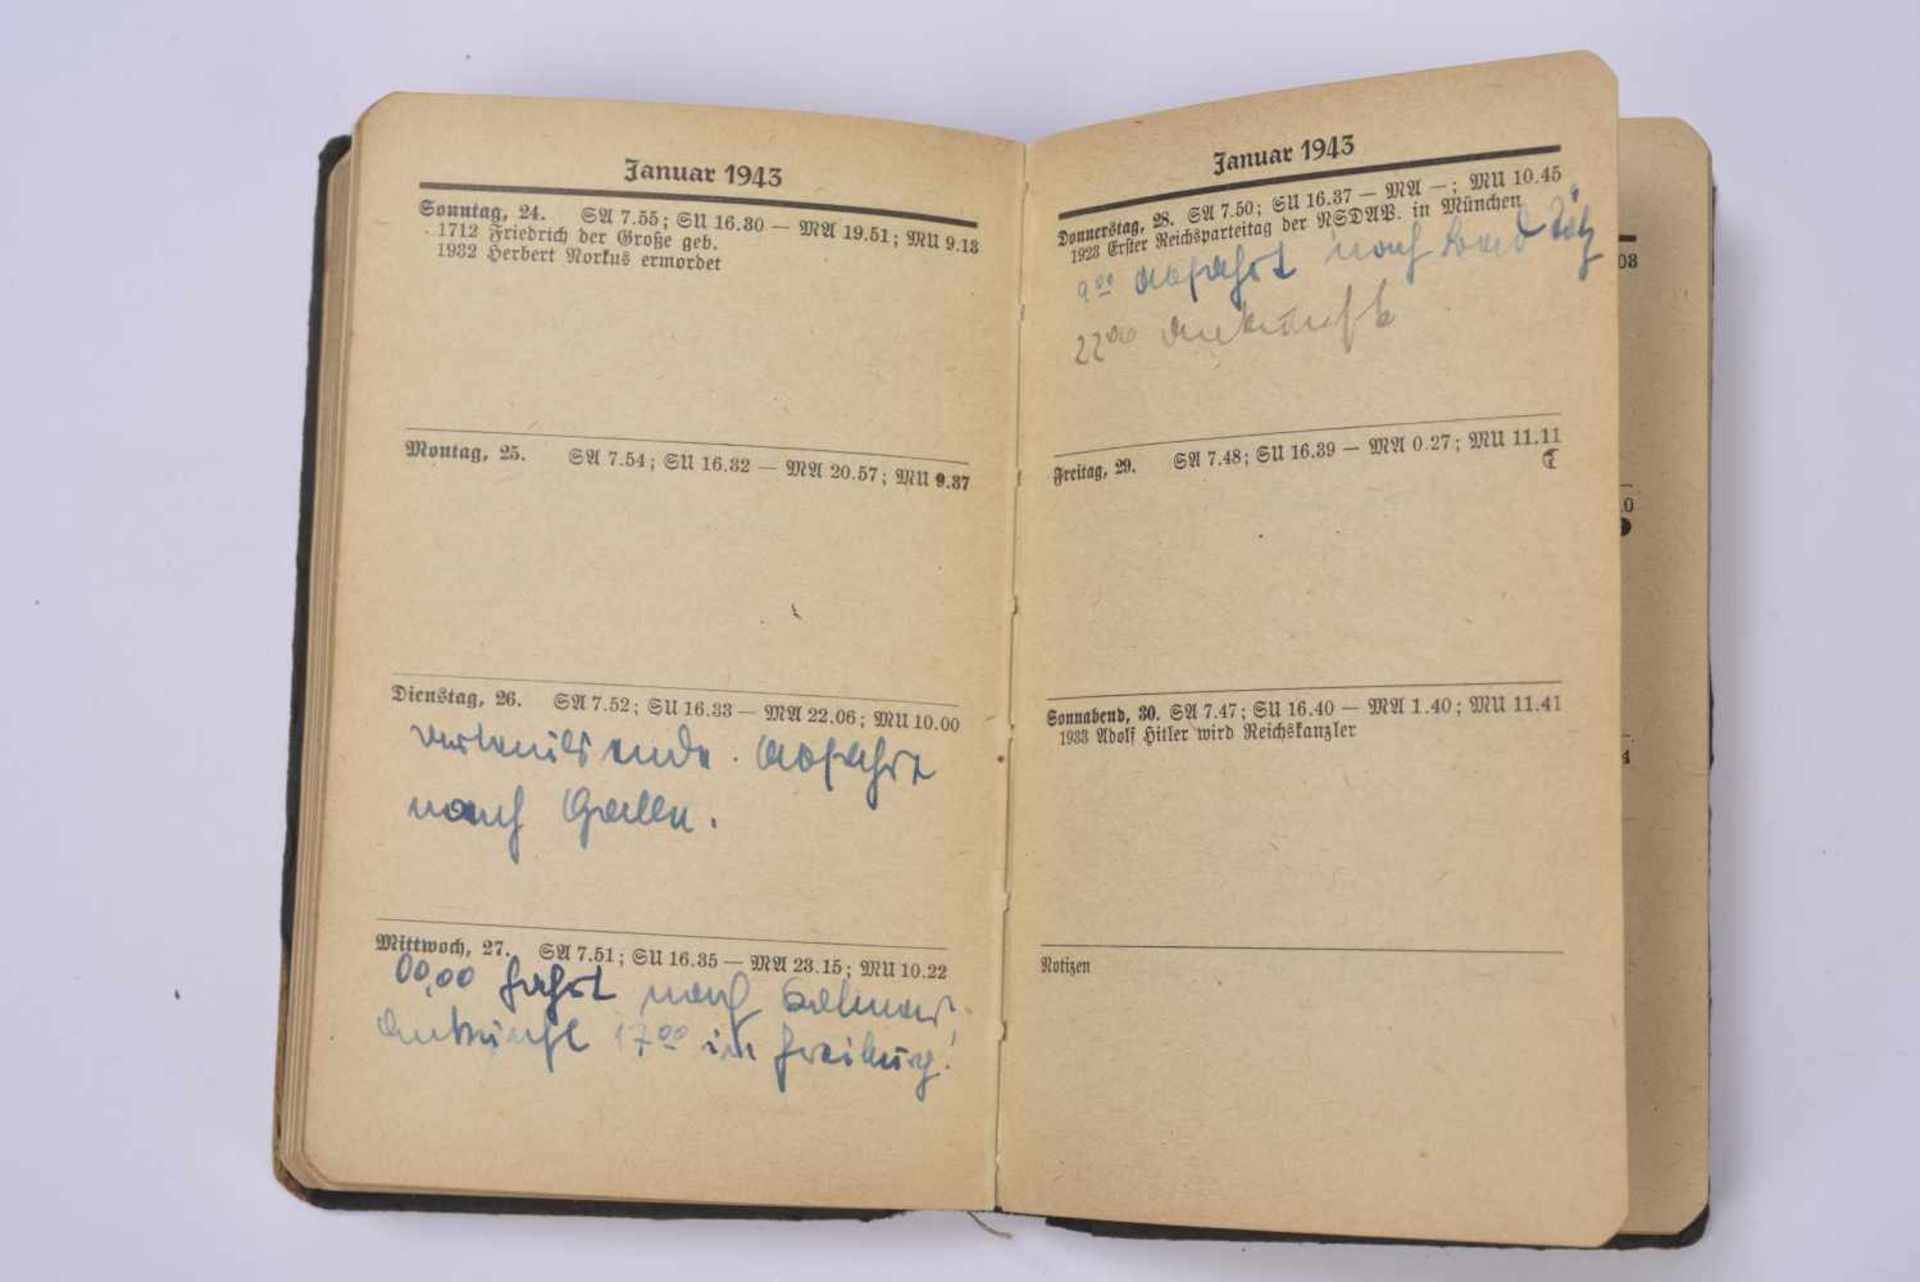 Januar 1943
Sonntag, 24. SA 7.55; SU 16.30 — MA 19.51; MU 9.13
1712 Friedrich der Große geb.
1932 Herbert Norkus ermordet
Montag, 25. SA 7.54; SU 16.32 — MA 20.57; MU 9.37
Dienstag, 26. SA 7.52; SU 16.33 — MA 22.06; MU 10.00
ende. Abfahrt
nach
Mittwoch, 27. SA 7.51; SU 16.35 — MA 23.15; MU 10.22
00,00 Fahrt nach Colmar.
Ankunft 17⁰⁰ in Freiburg!
Januar 1943
Donnerstag, 28. SA 7.50; SU 16.37 — MA —; MU 10.45
1923 Erster Reichsparteitag der NSDAP. in München
9⁰⁰ Abfahrt nach Bad Tölz
22⁰⁰ Ankunft
Freitag, 29. SA 7.48; SU 16.39 — MA 0.27; MU 11.11
Sonnabend, 30. SA 7.47; SU 16.40 — MA 1.40; MU 11.41
1933 Adolf Hitler wird Reichskanzler
Notizen